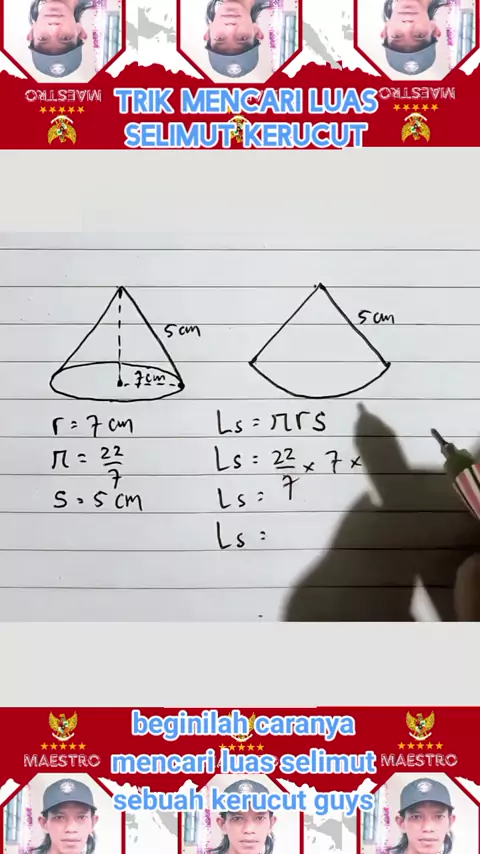 MAESTRO
MAESTRO
TRIK MENCARI LUAS
SELIMUT KERUCUT
5 cm
7 cm
5 cm
r = 7 cm
π = 22/7
s = 5 cm
Ls = π r s
Ls = 22/7 × 7 ×
Ls =
Ls =
beginilah caranya
mencari luas selimut
sebuah kerucut guys
MAESTRO
MAESTRO